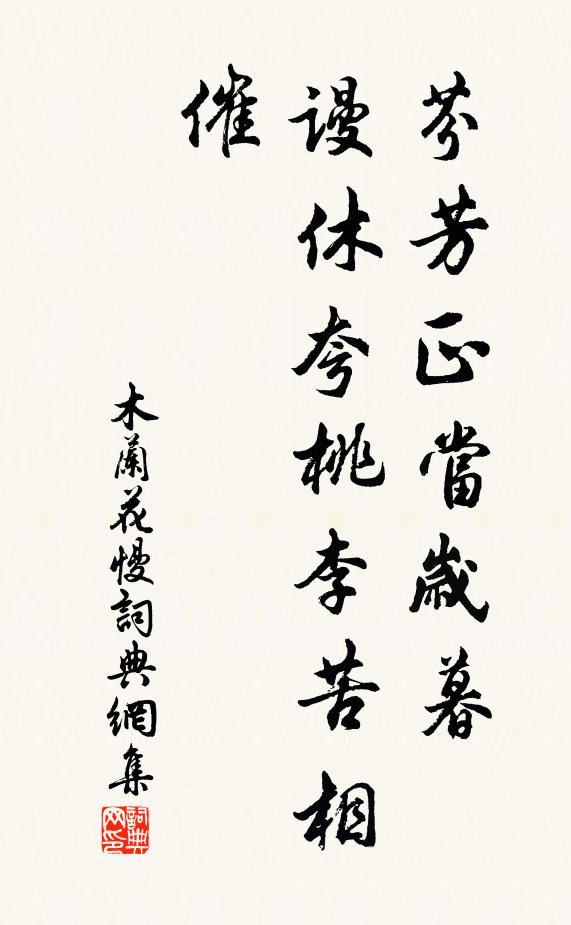 芬芳正當歲暮
謾休夸桃李苦相
催
木蘭花慢詞典網集
詞典网印